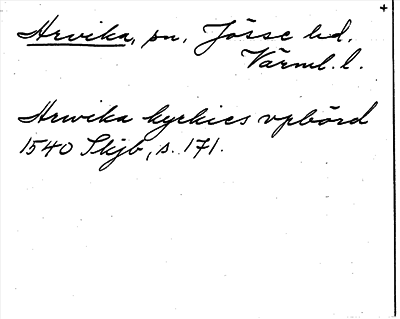 Arvika, sn, Jösse hd.
Värml. l.
Arwika kyrkies vpbörd
1540 Skjb, s. 171.